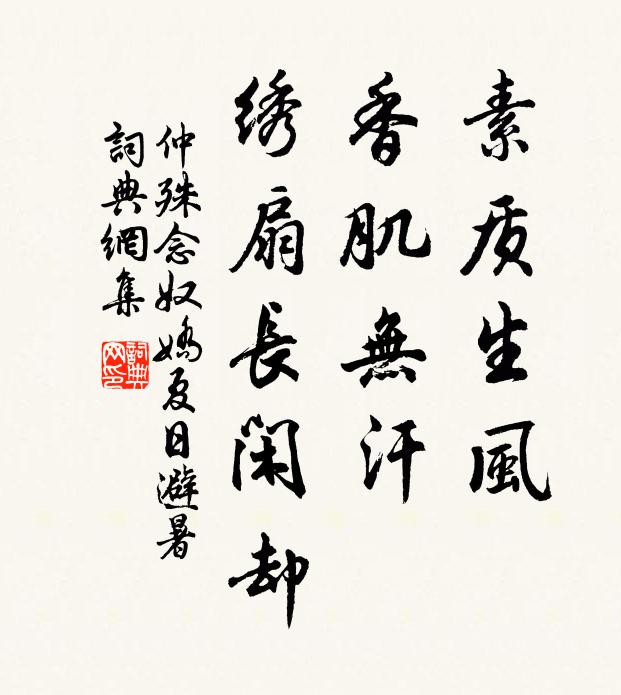 素质生風
香肌無汗
绣扇長闲却
仲殊念奴嬌夏日避暑
詞典網集
詞典网印